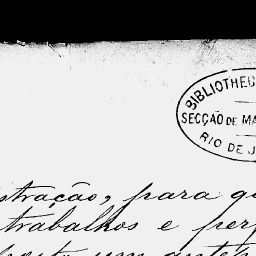 BIBLIOTHEC
SECÇÃO DE MA
RIO DE J
stração, para q
trabalhos e per